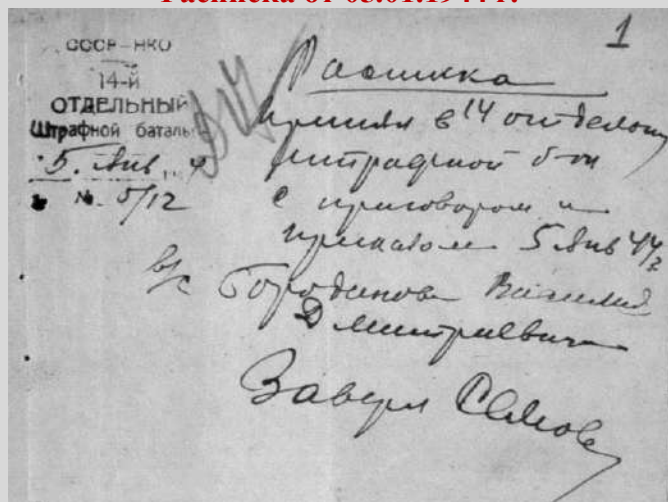 Расписка от 05.01.1944 г.
1
СССР–НКО
14-й
ОТДЕЛЬНЫЙ
Штрафной баталь
5. Янв 4
№ 5/12
Расписка
принял в 14 отдельный
штрафной б-он
с приговором и
приказом 5 Янв 44 г
в/с Бородинова Василия
Дмитриевича